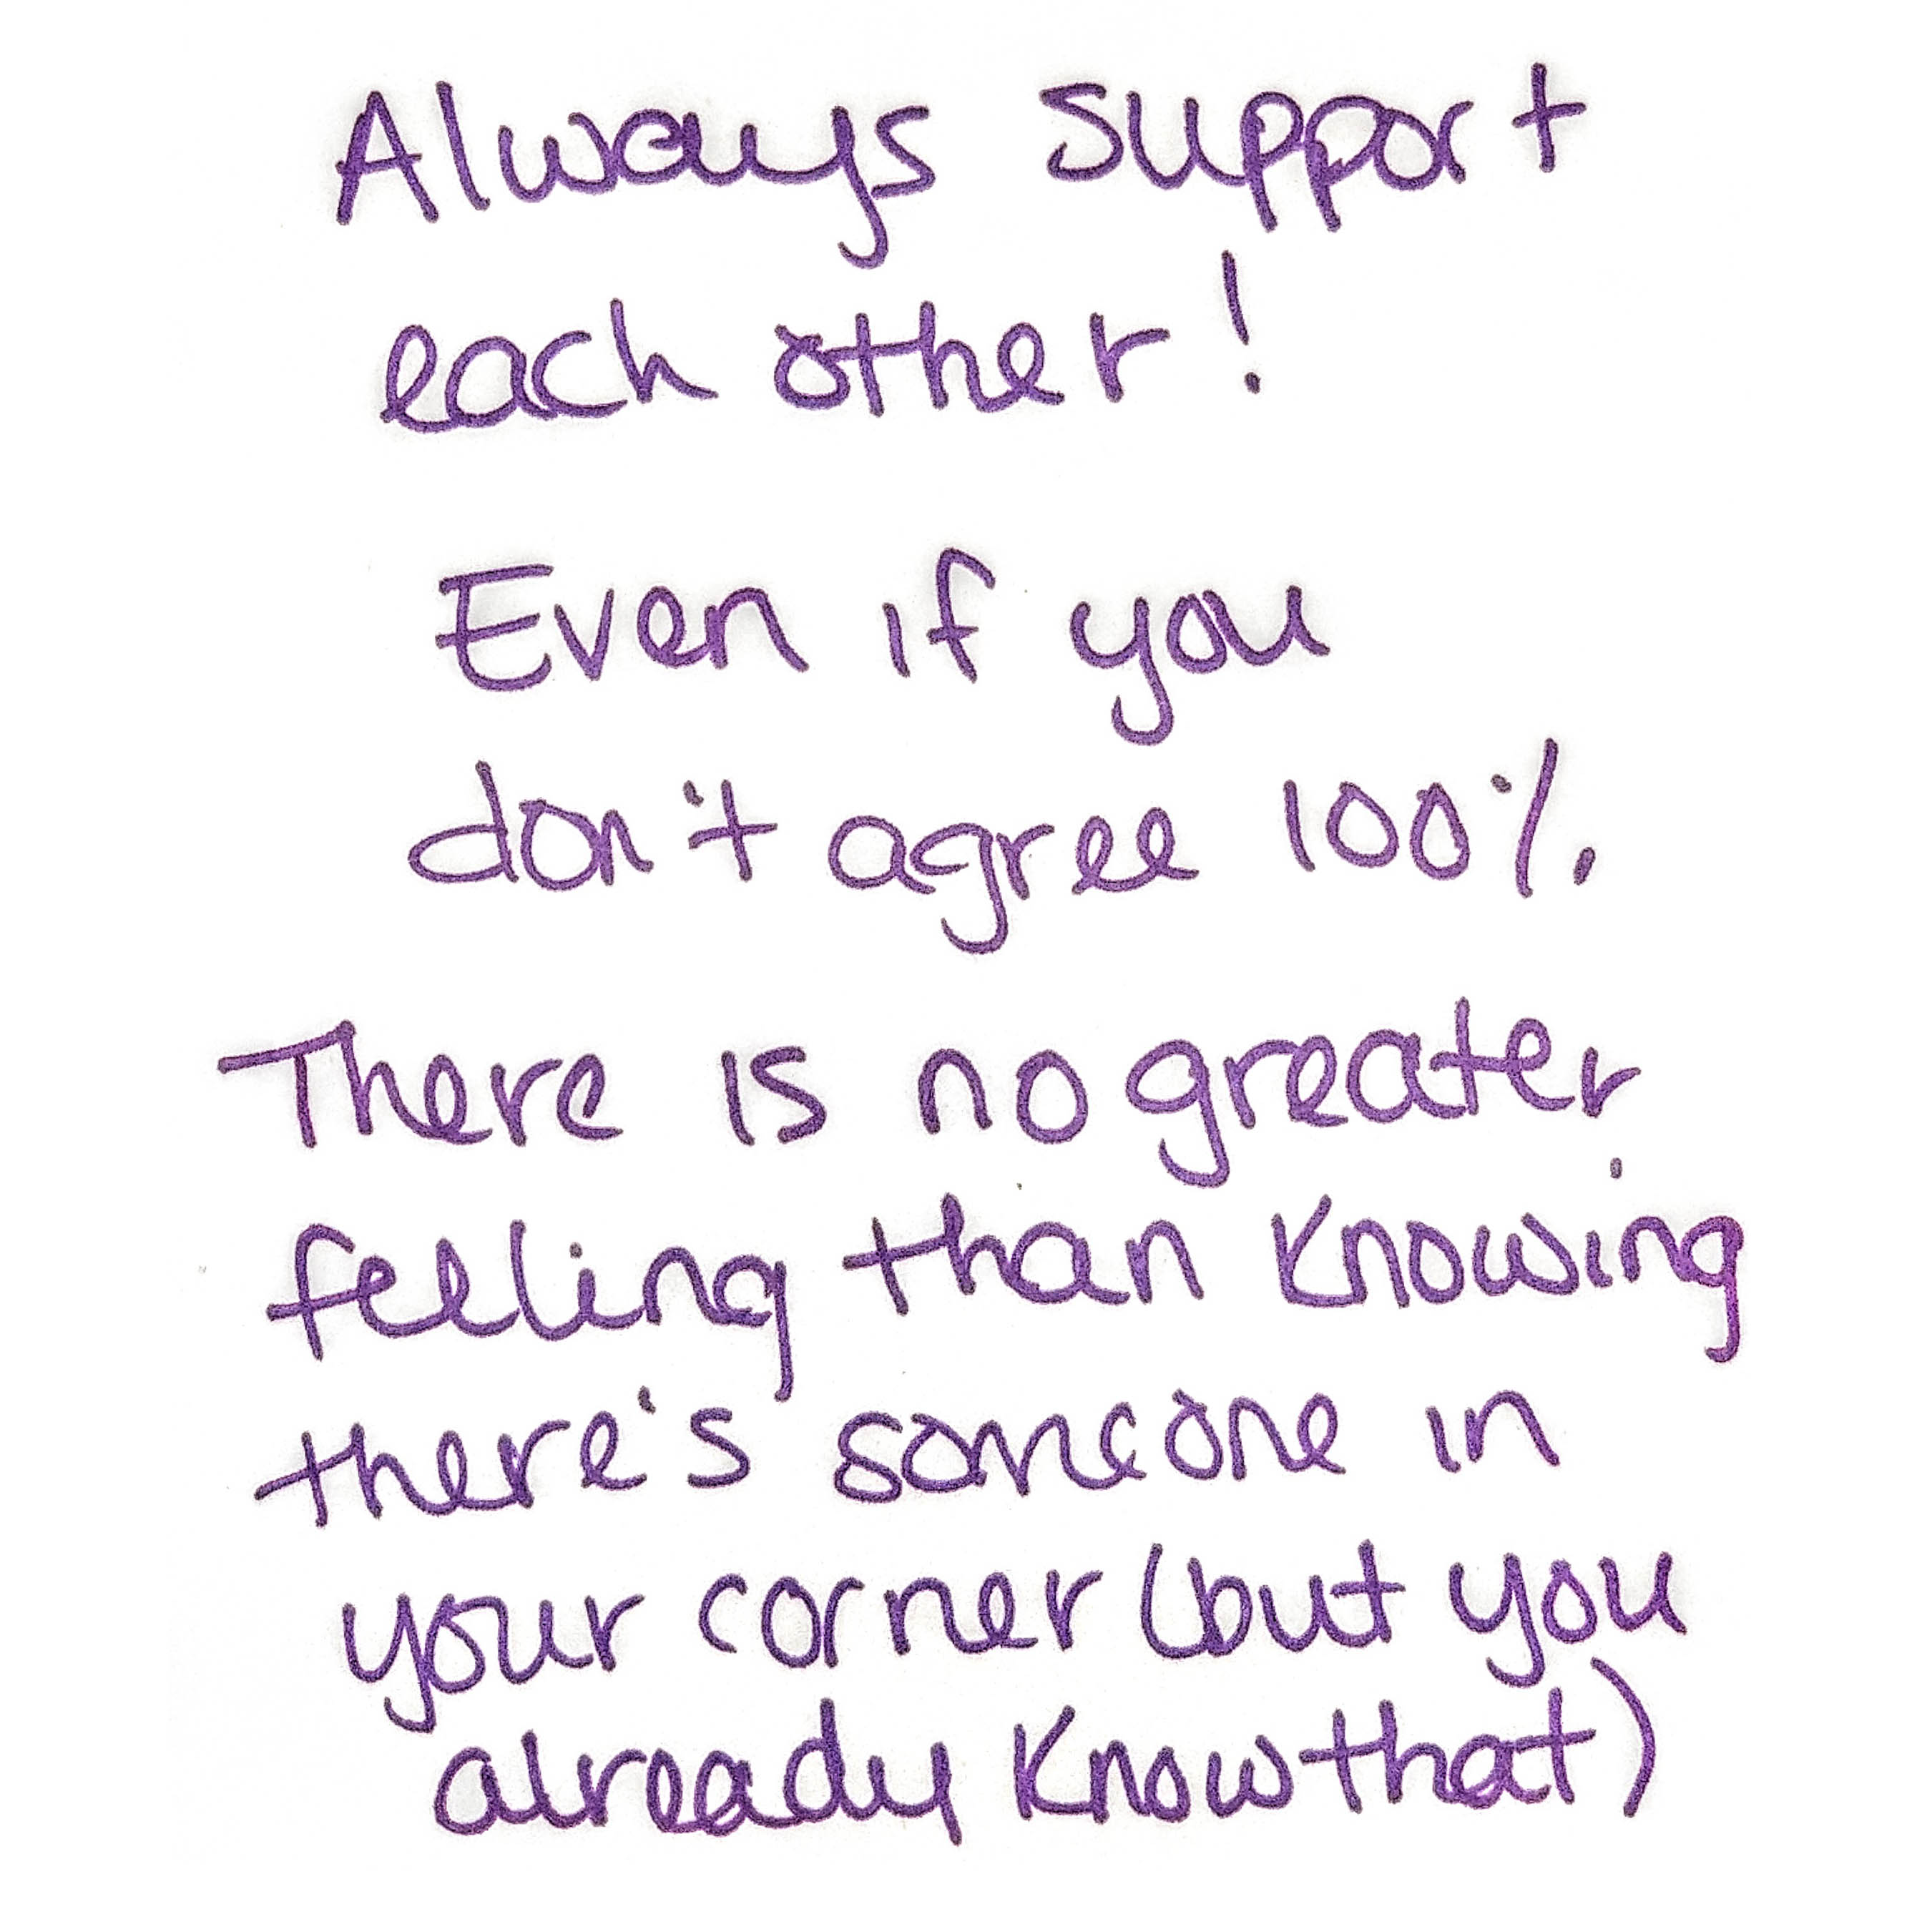 Always support
each other!
Even if you
don't agree 100%.
There is no greater
feeling than knowing
there's someone in
your corner (but you
already know that)